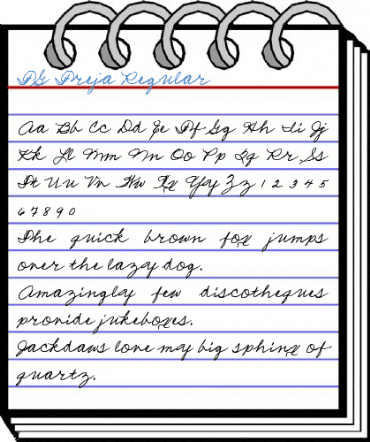 PG Preja Regular
Aa Bb Cc Dd Ee Ff Gg Hh Ii Jj
Kk Ll Mm Nn Oo Pp Qq Rr Ss
Tt Uu Vv Ww Xx Yy Zz 1 2 3 4 5
6 7 8 9 0
The quick brown fox jumps
over the lazy dog.
Amazingly few discotheques
provide jukeboxes.
Jackdaws love my big sphinx of
quartz.